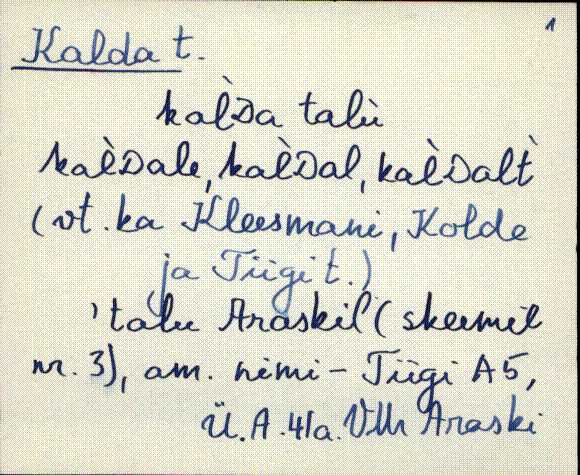 1
Kalda t.
kal̀Da talù
kal̀Dale, kal̀Dal, kal̀Dalt̀
(vt. ka Kleesmani, Kolde
ja Tiigi t.)
'talu Araskil (skeemil
nr. 3), am. nimi - Tiigi A5,
Ü. A. 41a. Vllr Araski